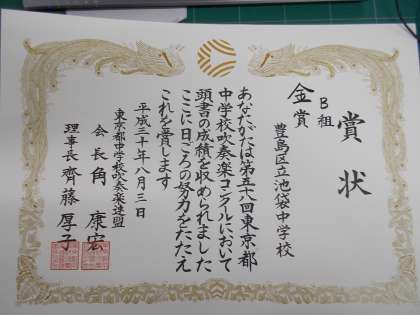 賞状
B組
金賞
豊島区立池袋中学校
あなたがたは第五十八回東京都
中学校吹奏楽コンクールにおいて
頭書の成績を収められました
ここに日ごろの努力をたたえ
これを賞します
平成三十年八月三日
東京都中学校吹奏楽連盟
会長 角 康宏
理事長 齊藤厚子